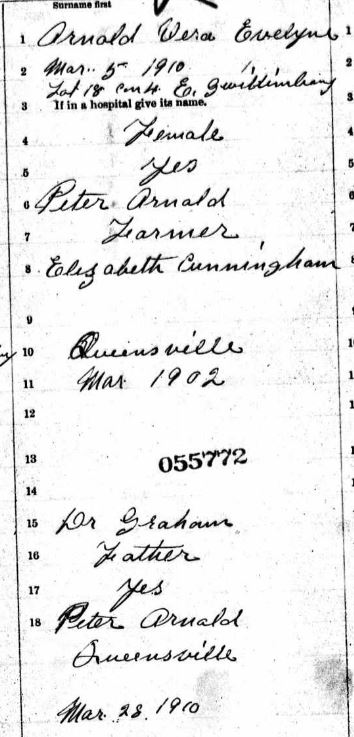 Surname first
1 Arnold Vera Evelyne 1
2 Mar. 5 1910
Lot 18 Con 4. E. Gwillimbury
3 If in a hospital give its name.
Female
4
Yes
5
6 Peter Arnald
7 Farmer
8 Elizabeth Cunningham
9
10 Queensville
11 Mar. 1902
12
13 055772
14
15 Dr Graham
16 Father
17 Yes
18 Peter Arnald
Queensville
Mar. 28. 1910